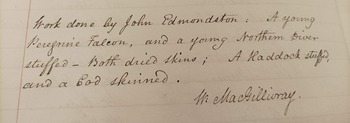 Work done by John Edmondston: A young
Peregrine Falcon, and a young Northern Diver
stuffed - Both dried skins; A Haddock stuffed,
and a Cod skinned.
W. MacGillivray.